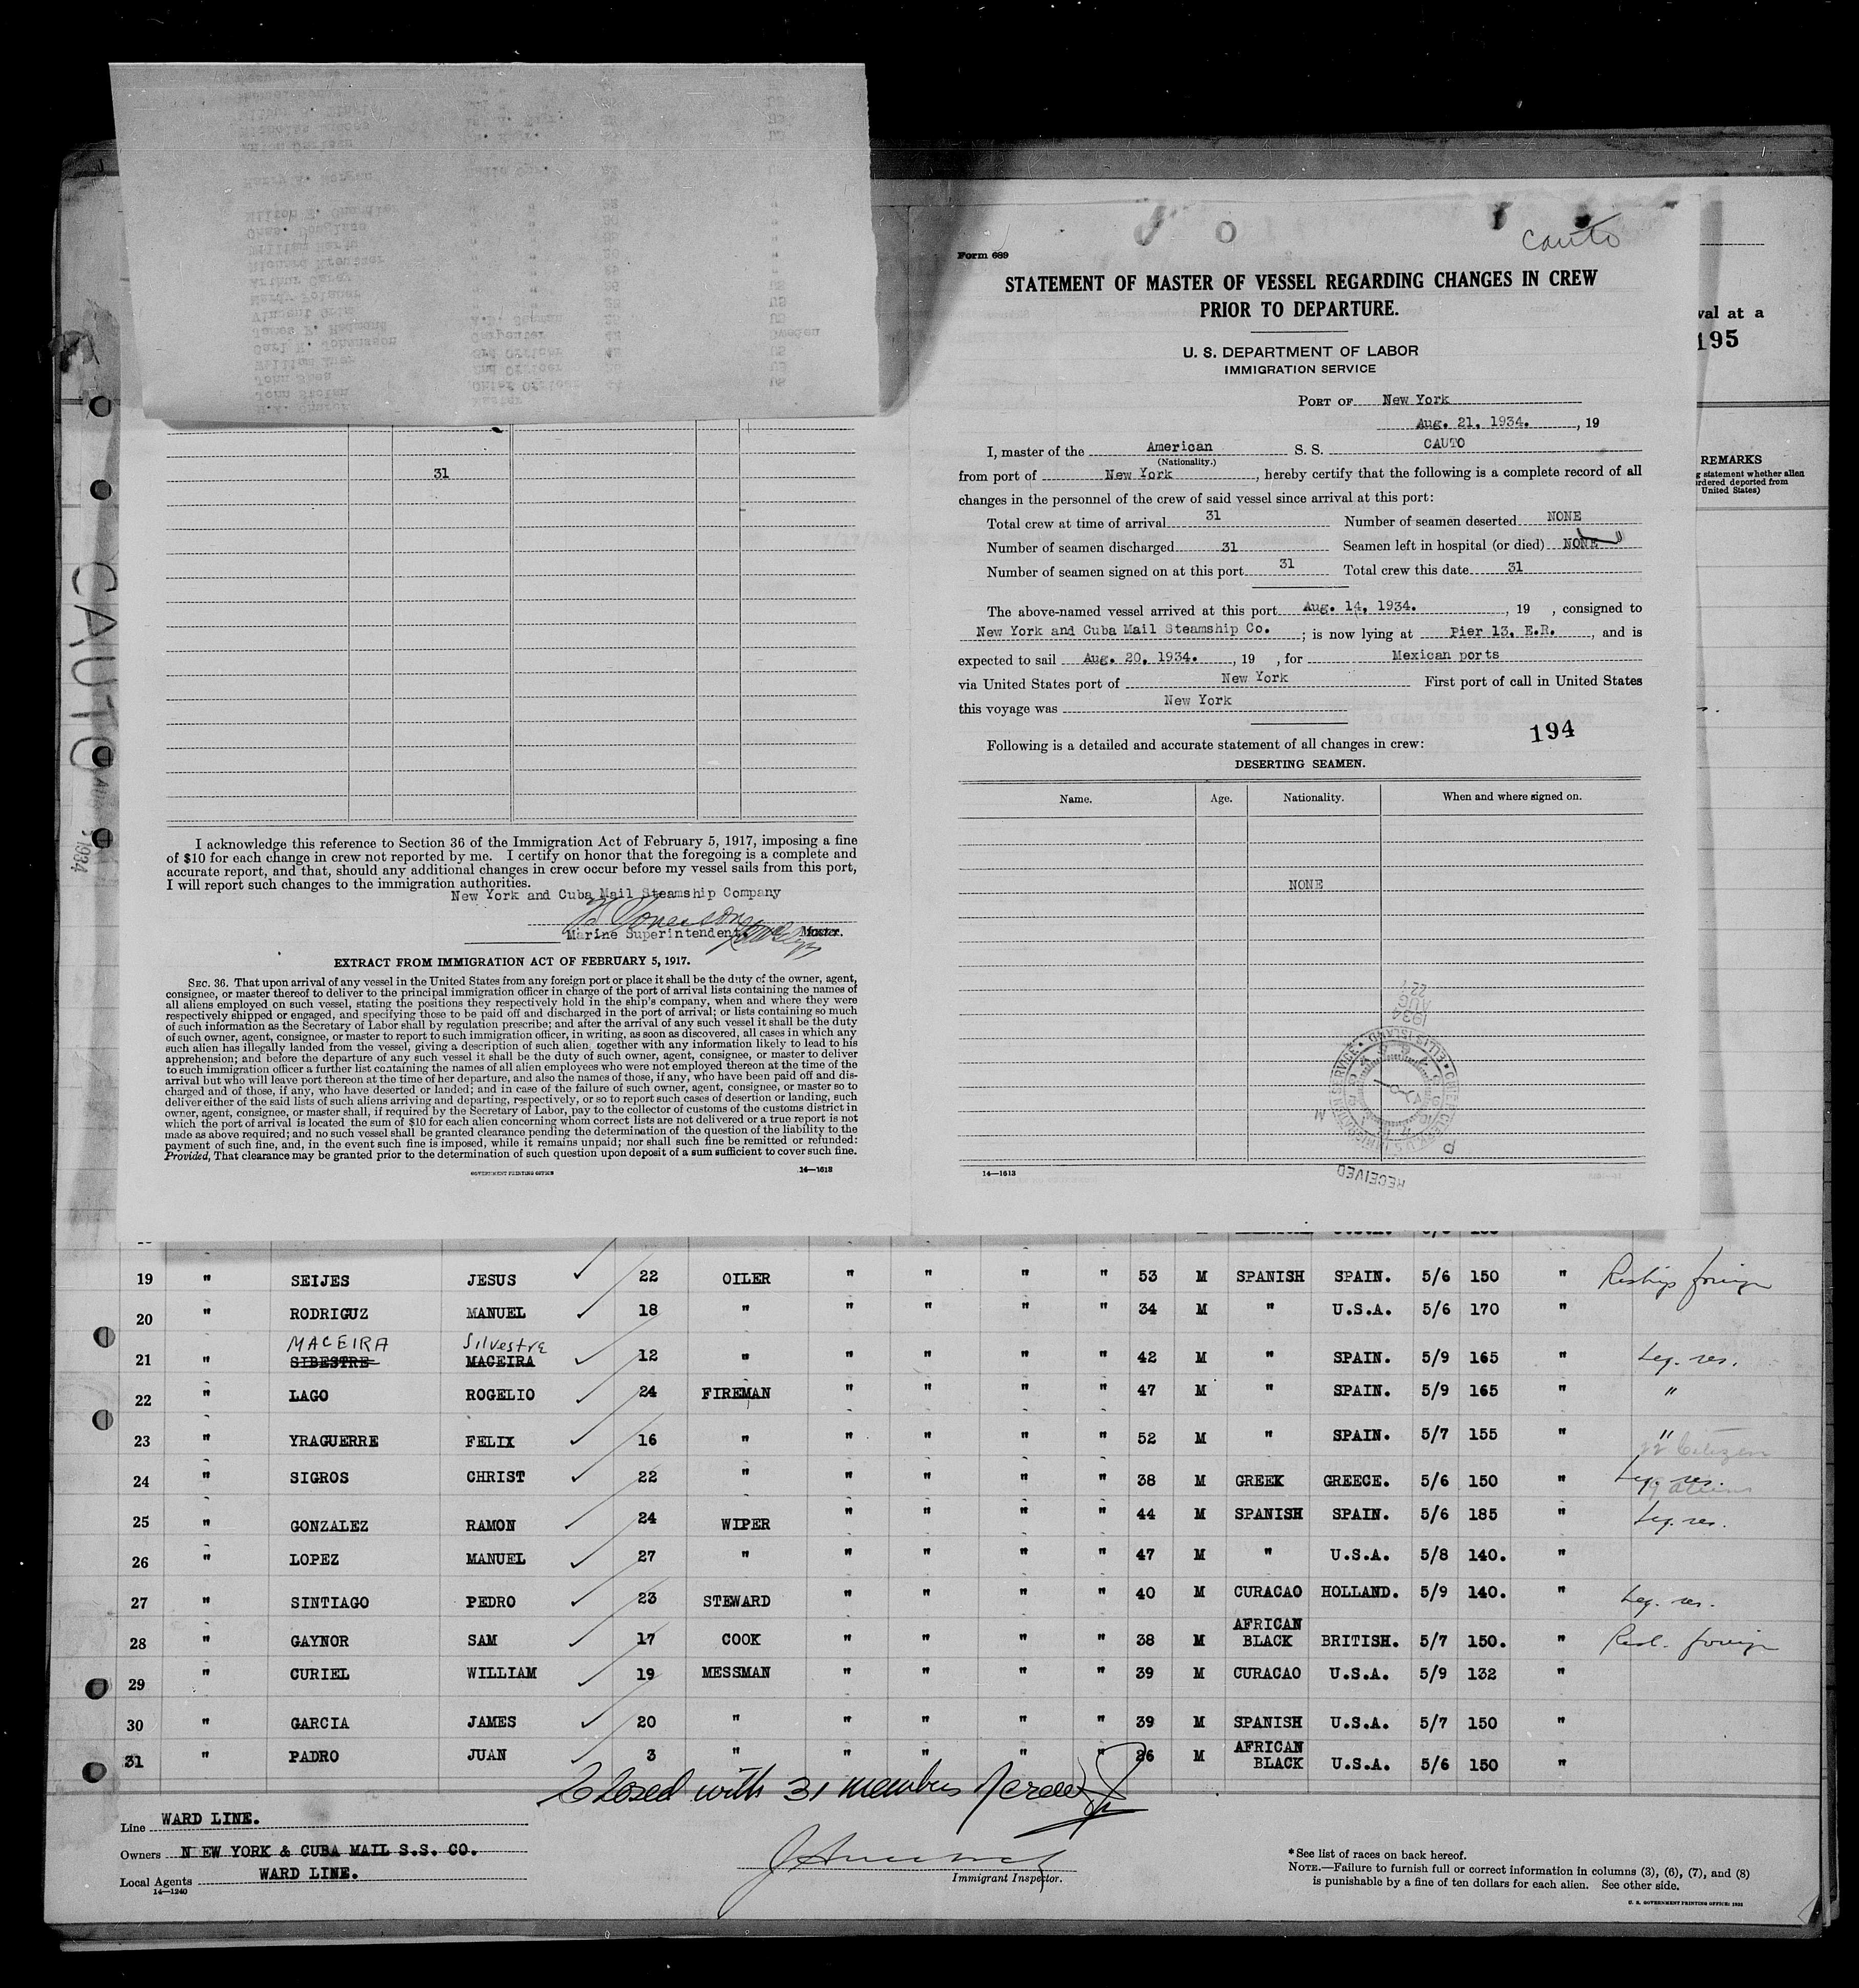 cauto
Form 689
STATEMENT OF MASTER OF VESSEL REGARDING CHANGES IN CREW
PRIOR TO DEPARTURE.
U. S. DEPARTMENT OF LABOR
IMMIGRATION SERVICE
PORT OF New York
Aug. 21, 1934. , 19
I, master of the American S. S. CAUTO
(Nationality.)
from port of New York , hereby certify that the following is a complete record of all
changes in the personnel of the crew of said vessel since arrival at this port:
Total crew at time of arrival 31 Number of seamen deserted NONE
Number of seamen discharged 31 Seamen left in hospital (or died) NONE
Number of seamen signed on at this port 31 Total crew this date 31
The above-named vessel arrived at this port Aug. 14, 1934. , 19 , consigned to
New York and Cuba Mail Steamship Co. ; is now lying at Pier 13, E.R. , and is
expected to sail Aug. 20, 1934. , 19 , for Mexican ports
via United States port of New York First port of call in United States
this voyage was New York
194
Following is a detailed and accurate statement of all changes in crew:
DESERTING SEAMEN.
Name. Age. Nationality. When and where signed on.
NONE
1934
AUG
22
RECEIVED
14—1613
val at a
195
REMARKS
g statement whether alien
rdered deported from
United States)
CAUTO
1934
31
I acknowledge this reference to Section 36 of the Immigration Act of February 5, 1917, imposing a fine
of $10 for each change in crew not reported by me. I certify on honor that the foregoing is a complete and
accurate report, and that, should any additional changes in crew occur before my vessel sails from this port,
I will report such changes to the immigration authorities.
New York and Cuba Mail Steamship Company
Marine Superintendent. Master.
EXTRACT FROM IMMIGRATION ACT OF FEBRUARY 5, 1917.
SEC. 36. That upon arrival of any vessel in the United States from any foreign port or place it shall be the duty of the owner, agent,
consignee, or master thereof to deliver to the principal immigration officer in charge of the port of arrival lists containing the names of
all aliens employed on such vessel, stating the positions they respectively hold in the ship's company, when and where they were
respectively shipped or engaged, and specifying those to be paid off and discharged in the port of arrival; or lists containing so much
of such information as the Secretary of Labor shall by regulation prescribe; and after the arrival of any such vessel it shall be the duty
of such owner, agent, consignee, or master to report to such immigration officer, in writing, as soon as discovered, all cases in which any
such alien has illegally landed from the vessel, giving a description of such alien, together with any information likely to lead to his
apprehension; and before the departure of any such vessel it shall be the duty of such owner, agent, consignee, or master to deliver
to such immigration officer a further list containing the names of all alien employees who were not employed thereon at the time of the
arrival but who will leave port thereon at the time of her departure, and also the names of those, if any, who have been paid off and dis-
charged and of those, if any, who have deserted or landed; and in case of the failure of such owner, agent, consignee, or master so to
deliver either of the said lists of such aliens arriving and departing, respectively, or so to report such cases of desertion or landing, such
owner, agent, consignee, or master shall, if required by the Secretary of Labor, pay to the collector of customs of the customs district in
which the port of arrival is located the sum of $10 for each alien concerning whom correct lists are not delivered or a true report is not
made as above required; and no such vessel shall be granted clearance pending the determination of the question of the liability to the
payment of such fine, and, in the event such fine is imposed, while it remains unpaid; nor shall such fine be remitted or refunded:
Provided, That clearance may be granted prior to the determination of such question upon deposit of a sum sufficient to cover such fine.
GOVERNMENT PRINTING OFFICE 14—1613
19 " SEIJES JESUS 22 OILER " " " " 53 M SPANISH SPAIN. 5/6 150 " Reships foreign
20 " RODRIGUZ MANUEL 18 " " " " " 34 M " U.S.A. 5/6 170 "
MACEIRA Silvestre
21 " SIBESTRE MACEIRA 12 " " " " " 42 M " SPAIN. 5/9 165 " Leg. res.
22 " LAGO ROGELIO 24 FIREMAN " " " " 47 M " SPAIN. 5/9 165 " "
23 " YRAGUERRE FELIX 16 " " " " " 52 M " SPAIN. 5/7 155 " "
22 Citizen
24 " SIGROS CHRIST 22 " " " " " 38 M GREEK GREECE. 5/6 150 " Leg. res.
9 aliens
25 " GONZALEZ RAMON 24 WIPER " " " " 44 M SPANISH SPAIN. 5/6 185 " Leg. res.
26 " LOPEZ MANUEL 27 " " " " " 47 M " U.S.A. 5/8 140. "
27 " SINTIAGO PEDRO 23 STEWARD " " " " 40 M CURACAO HOLLAND. 5/9 140. " Leg. res.
28 " GAYNOR SAM 17 COOK " " " " 38 M AFRICAN BLACK BRITISH. 5/7 150. " Resh. foreign
29 " CURIEL WILLIAM 19 MESSMAN " " " " 39 M CURACAO U.S.A. 5/9 132 "
30 " GARCIA JAMES 20 " " " " " 39 M SPANISH U.S.A. 5/7 150 "
31 " PADRO JUAN 3 " " " " " 26 M AFRICAN BLACK U.S.A. 5/6 150 "
Closed with 31 members of crew
Line WARD LINE.
Owners N EW YORK & CUBA MAIL S.S. CO.
Local Agents WARD LINE.
14—1240
Immigrant Inspector.
*See list of races on back hereof.
NOTE.—Failure to furnish full or correct information in columns (3), (6), (7), and (8)
is punishable by a fine of ten dollars for each alien. See other side.
U. S. GOVERNMENT PRINTING OFFICE: 1932